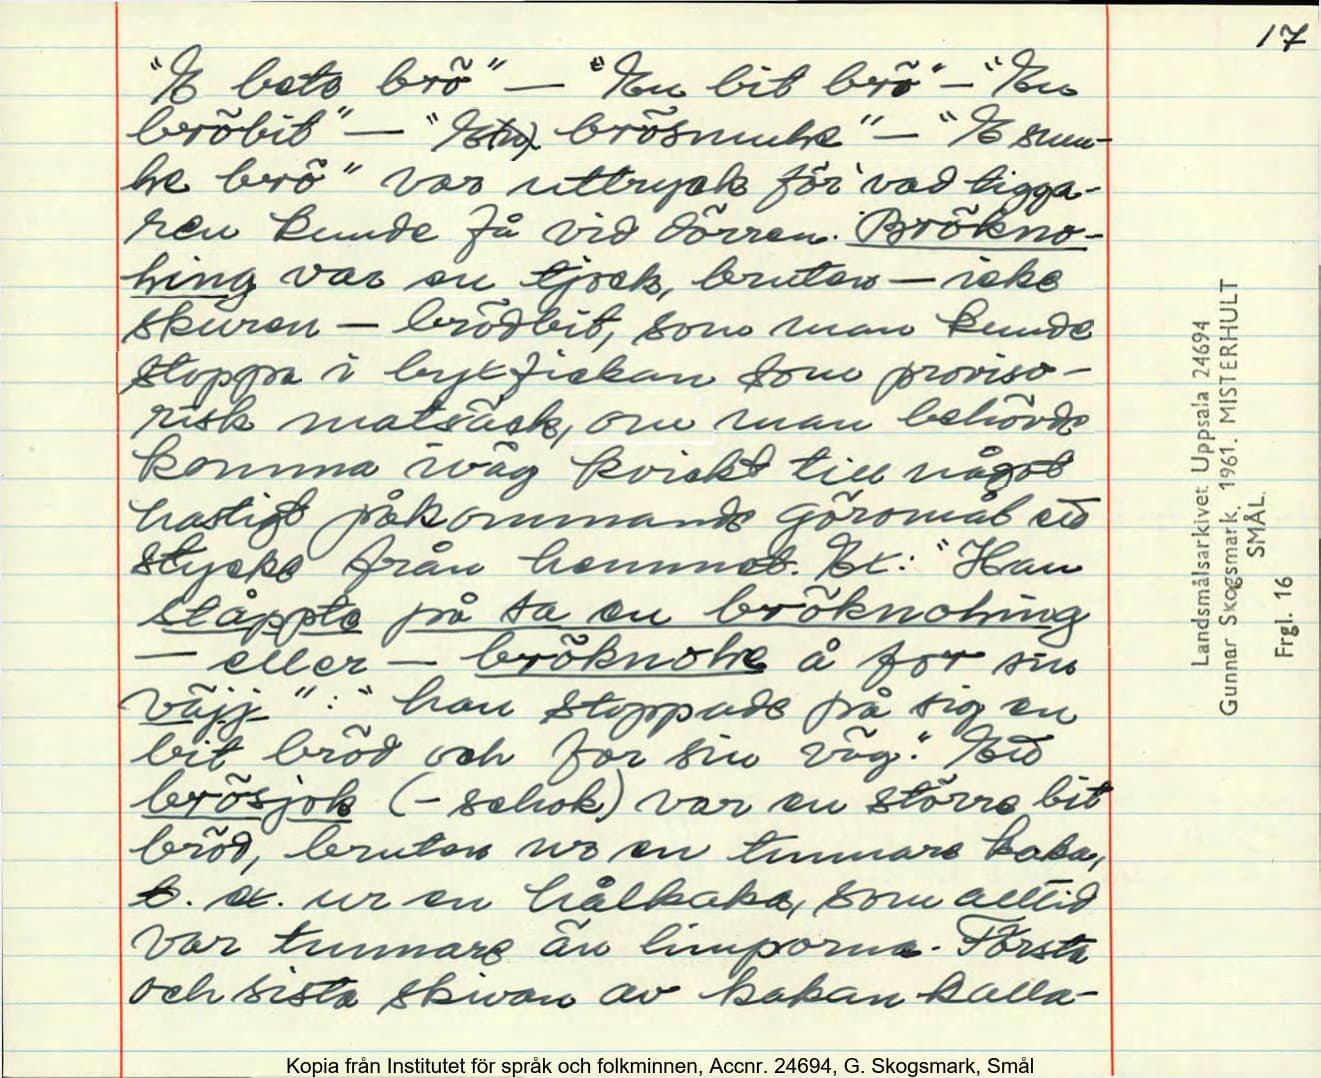 17
"E beta brö" — "En bit brö" — "En
bröbit" — "E(n) brösmule" — "E smu-
le brö" var uttryck för vad tigga-
ren kunde få vid dörren. Brökno-
hing var en tjock, bruten — icke
skuren — brödbit, som man kunde
stoppa i byxfickan som proviso-
risk matsäck, om man behövde
komma iväg kvickt till något
hastigt påkommande göromål ett
stycke från hemmet. Ex.: "Han
ståppte på sa en bröknohing
— eller — bröknohe å for sin
väjj": "han stoppade på sig en
bit bröd och for sin väg." Ett
brösjok (-schok) var en större bit
bröd, bruten ur en tunnare kaka,
t. ex. ur en hålkaka, som alltid
var tunnare än limporna. Första
och sista skivan av kakan kalla-
Landsmålsarkivet Uppsala 24694
Gunnar Skogsmark, 1961. MISTERHULT
SMÅL.
Frgl. 16
Kopia från Institutet för språk och folkminnen, Accnr. 24694, G. Skogsmark, Smål